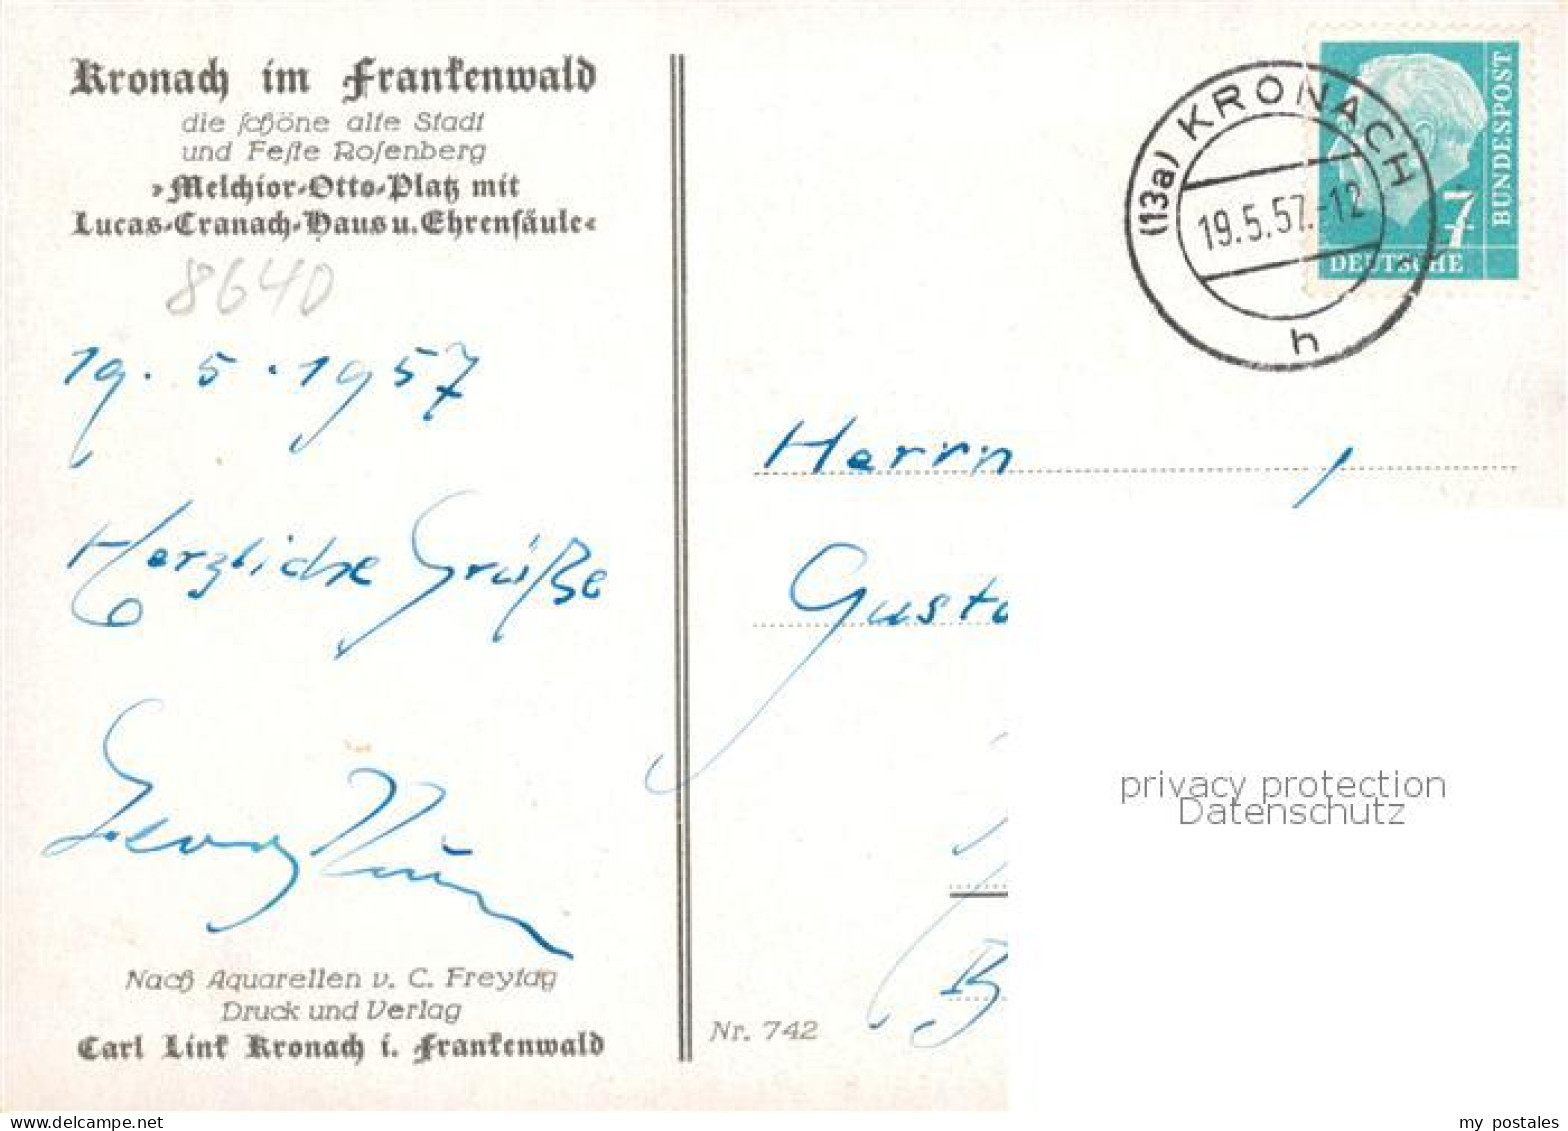 Kronach im Frankenwald
die schöne alte Stadt
und Feste Rosenberg
»Melchior-Otto-Platz mit
Lucas-Cranach-Haus u. Ehrensäule«
8640
19. 5. 1957
Herzliche Grüße
Georg
Nach Aquarellen v. C. Freytag
Druck und Verlag
Carl Link Kronach i. Frankenwald
Nr. 742
(13a) KRONACH
19.5.57.-12
h
BUNDESPOST
7
DEUTSCHE
Herrn
Gusta
B
privacy protection
Datenschutz
www.delcampe.net
my_postales